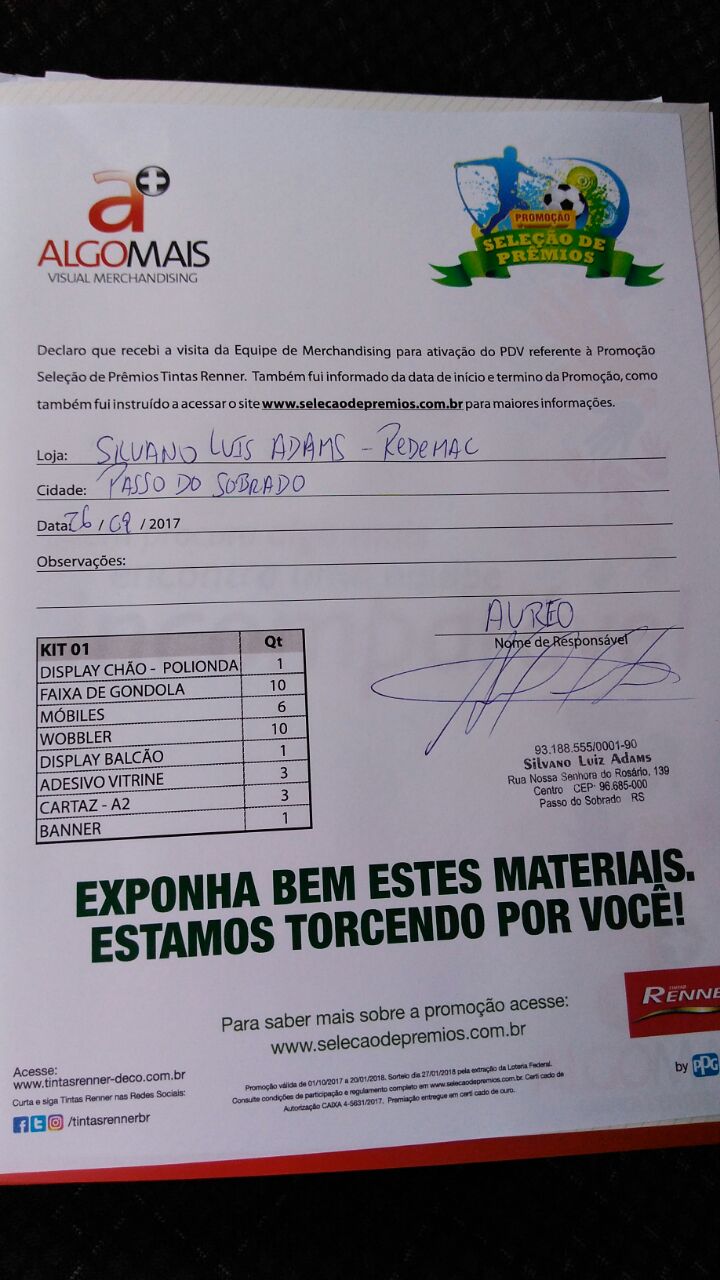 a+
ALGOMAIS
VISUAL MERCHANDISING
PROMOÇÃO
SELEÇÃO DE
PRÊMIOS
Declaro que recebi a visita da Equipe de Merchandising para ativação do PDV referente à Promoção
Seleção de Prêmios Tintas Renner. Também fui informado da data de início e termino da Promoção, como
também fui instruído a acessar o site www.selecaodepremios.com.br para maiores informações.
Loja: SILVANO LUIS ADAMS - REDEMAC
Cidade: PASSO DO SOBRADO
Data: 26 / 09 / 2017
Observações:
AUREO
Nome de Responsável
KIT 01 Qt
DISPLAY CHÃO - POLIONDA 1
FAIXA DE GONDOLA 10
MÓBILES 6
WOBBLER 10
DISPLAY BALCÃO 1
ADESIVO VITRINE 3
CARTAZ - A2 3
BANNER 1
93.188.555/0001-90
Silvano Luiz Adams
Rua Nossa Senhora do Rosário, 139
Centro CEP: 96.685-000
Passo do Sobrado RS
EXPONHA BEM ESTES MATERIAIS.
ESTAMOS TORCENDO POR VOCÊ!
Para saber mais sobre a promoção acesse:
www.selecaodepremios.com.br
TINTAS
RENNE
by PPG
Acesse:
www.tintasrenner-deco.com.br
Curta e siga Tintas Renner nas Redes Sociais:
/tintasrennerbr
Promoção válida de 01/10/2017 a 20/01/2018. Sorteio dia 27/01/2018 pela extração da Loteria Federal.
Consulte condições de participação e regulamento completo em www.selecaodepremios.com.br. Certi cado de
Autorização CAIXA 4-5631/2017. Premiação entregue em certi cado de ouro.